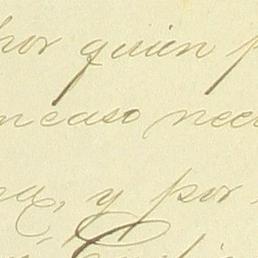 por quien p
en caso nece
na, y por